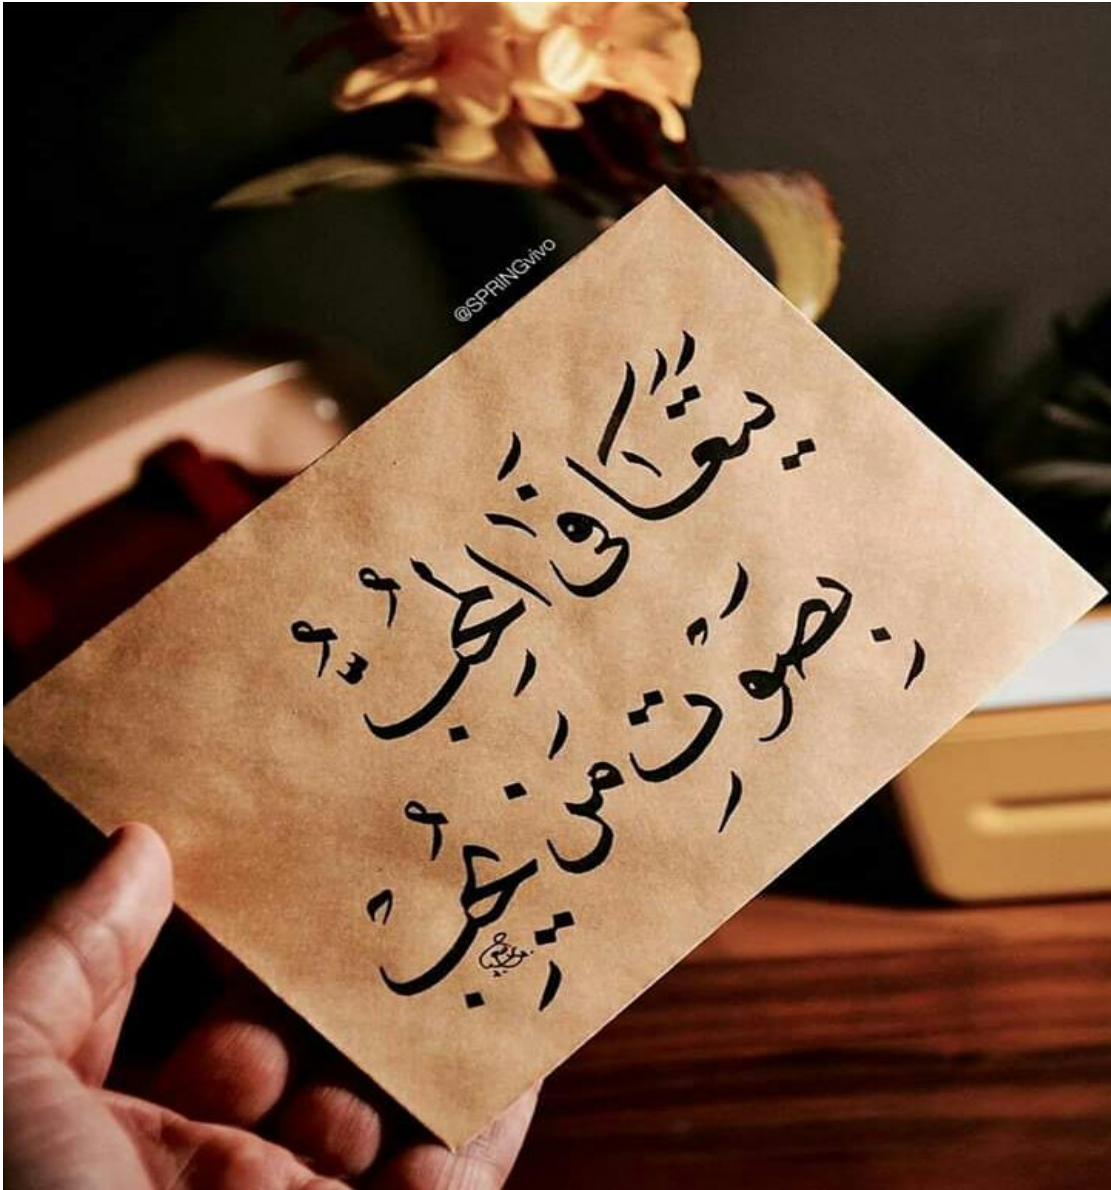 @SPRINGvivo
يَتَعَافَى المُحِبُّ
بِصَوْتِ مَن يُحِبْ